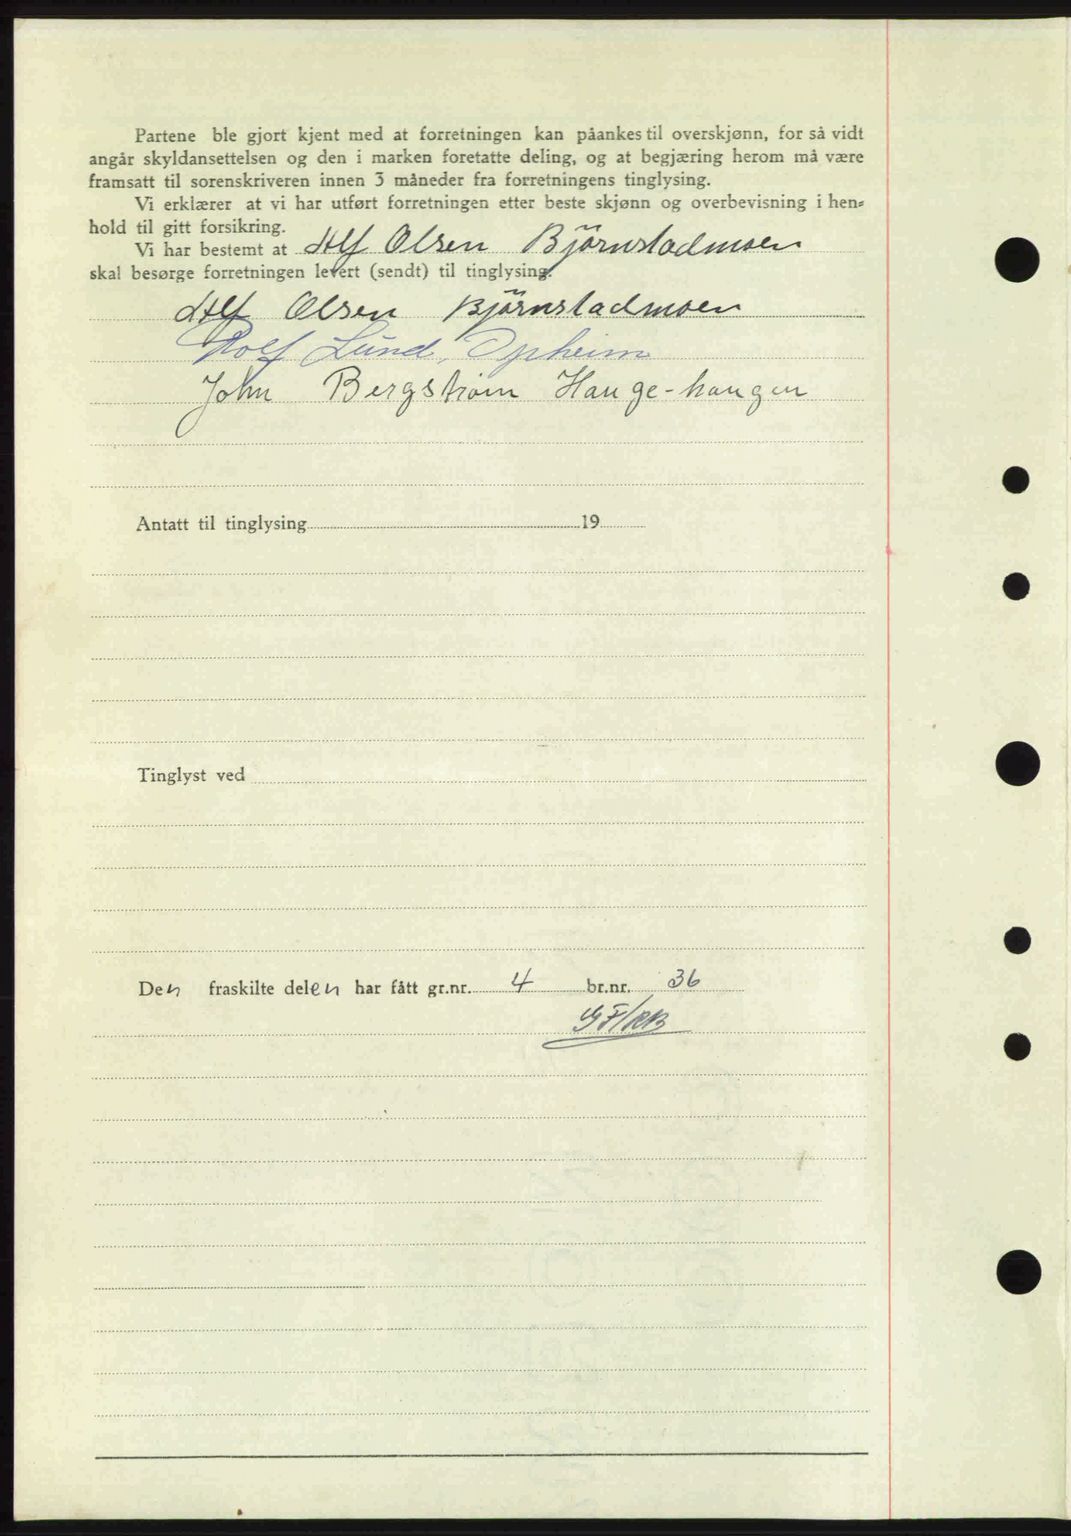 Partene ble gjort kjent med at forretningen kan påankes til overskjønn, for så vidt
angår skyldansettelsen og den i marken foretatte deling, og at begjæring herom må være
framsatt til sorenskriveren innen 3 måneder fra forretningens tinglysing.
Vi erklærer at vi har utført forretningen etter beste skjønn og overbevisning i hen-
hold til gitt forsikring.
Vi har bestemt at Alf Olsen Björnstadmoen
skal besørge forretningen levert (sendt) til tinglysing.
Alf Olsen Björnstadmoen
Rolf Lund, Opheim
John Bergstrøm Hauge-haugen
Antatt til tinglysing 19
Tinglyst ved
Den fraskilte delen har fått gr.nr. 4 br.nr. 36
GF/RB